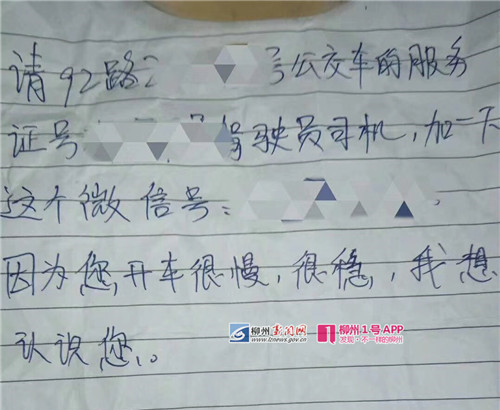 请92路 号公交车的服务
证号 号驾驶员司机，加一下
这个微信号：
因为您，开车很慢，很稳，我想
认识您。
柳州新闻网
www.lznews.gov.cn
柳州1号APP
发现！不一样的柳州